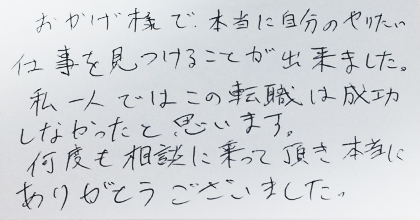 おかげ様で、本当に自分のやりたい
仕事を見つけることが出来ました。
私一人ではこの転職は成功
しなかったと思います。
何度も相談に乗って頂き本当に
ありがとうございました。